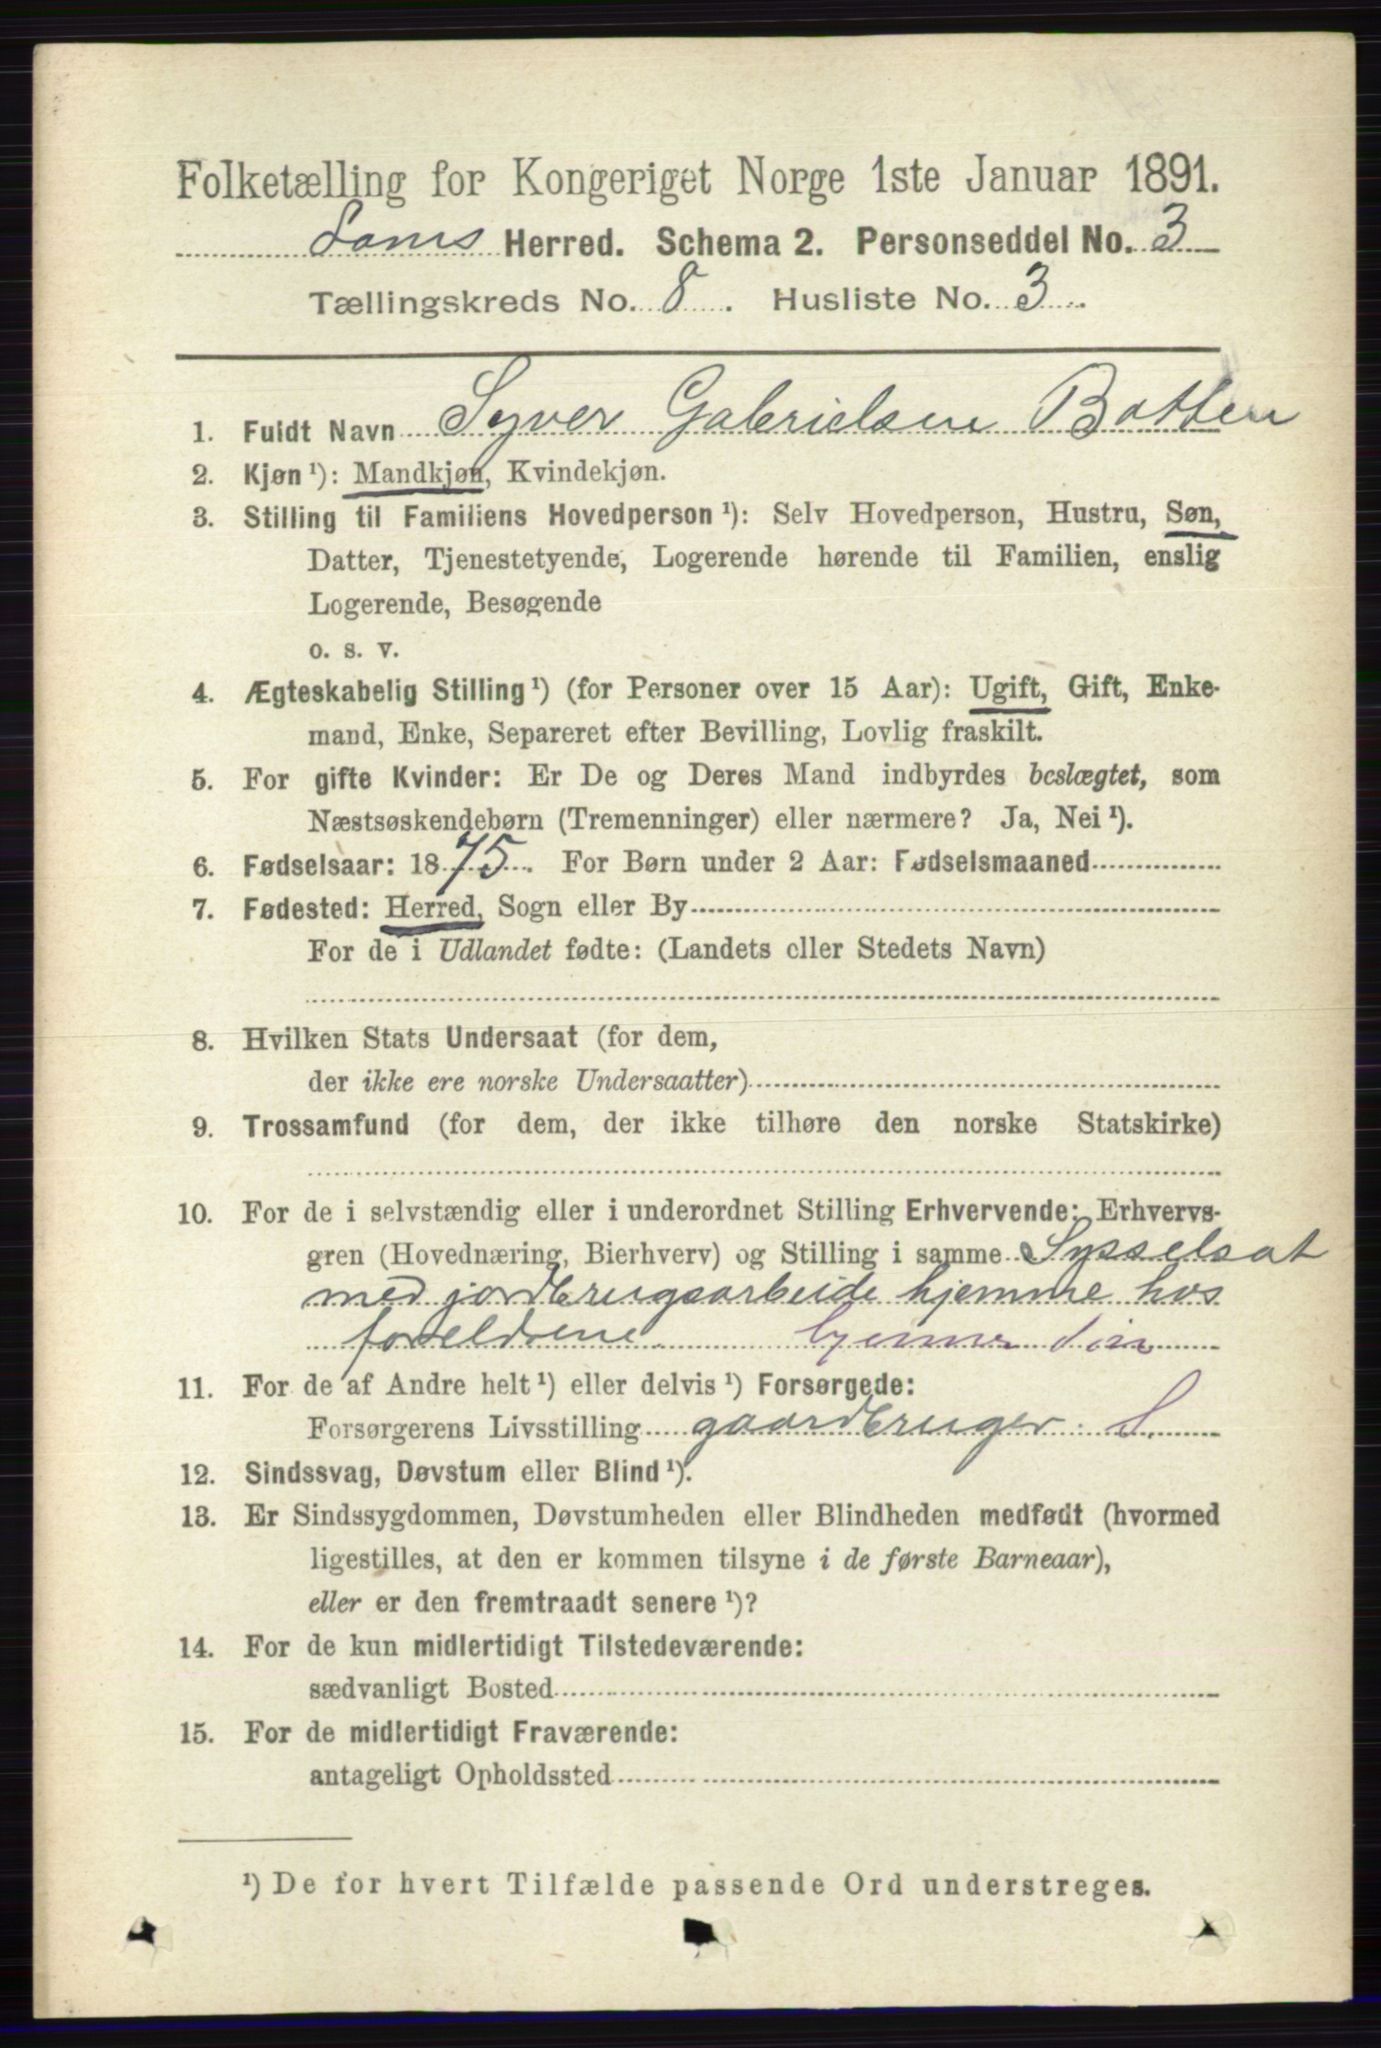 Folketælling for Kongeriget Norge 1ste Januar 1891.
Loms Herred. Schema 2. Personseddel No. 3
Tællingskreds No. 8. Husliste No. 3.
1. Fuldt Navn Syver Gabrielsen Botten
2. Kjøn ¹): Mandkjøn, Kvindekjøn.
3. Stilling til Familiens Hovedperson ¹): Selv Hovedperson, Hustru, Søn,
Datter, Tjenestetyende, Logerende hørende til Familien, enslig
Logerende, Besøgende
o. s. v.
4. Ægteskabelig Stilling ¹) (for Personer over 15 Aar): Ugift, Gift, Enke-
mand, Enke, Separeret efter Bevilling, Lovlig fraskilt.
5. For gifte Kvinder: Er De og Deres Mand indbyrdes beslægtet, som
Næstsøskendebørn (Tremenninger) eller nærmere? Ja, Nei ¹).
6. Fødselsaar: 1875. For Børn under 2 Aar: Fødselsmaaned
7. Fødested: Herred, Sogn eller By
For de i Udlandet fødte: (Landets eller Stedets Navn)
8. Hvilken Stats Undersaat (for dem,
der ikke ere norske Undersaatter)
9. Trossamfund (for dem, der ikke tilhøre den norske Statskirke)
10. For de i selvstændig eller i underordnet Stilling Erhvervende: Erhvervs-
gren (Hovednæring, Bierhverv) og Stilling i samme Sysselsat
med jordbrugsarbeide hjemme hos
foreldrene
11. For de af Andre helt ¹) eller delvis ¹) Forsørgede:
Forsørgerens Livsstilling gaardbruger S.
12. Sindssvag, Døvstum eller Blind ¹).
13. Er Sindssygdommen, Døvstumheden eller Blindheden medfødt (hvormed
ligestilles, at den er kommen tilsyne i de første Barneaar),
eller er den fremtraadt senere ¹)?
14. For de kun midlertidigt Tilstedeværende:
sædvanligt Bosted
15. For de midlertidigt Fraværende:
antageligt Opholdssted
¹) De for hvert Tilfælde passende Ord understreges.